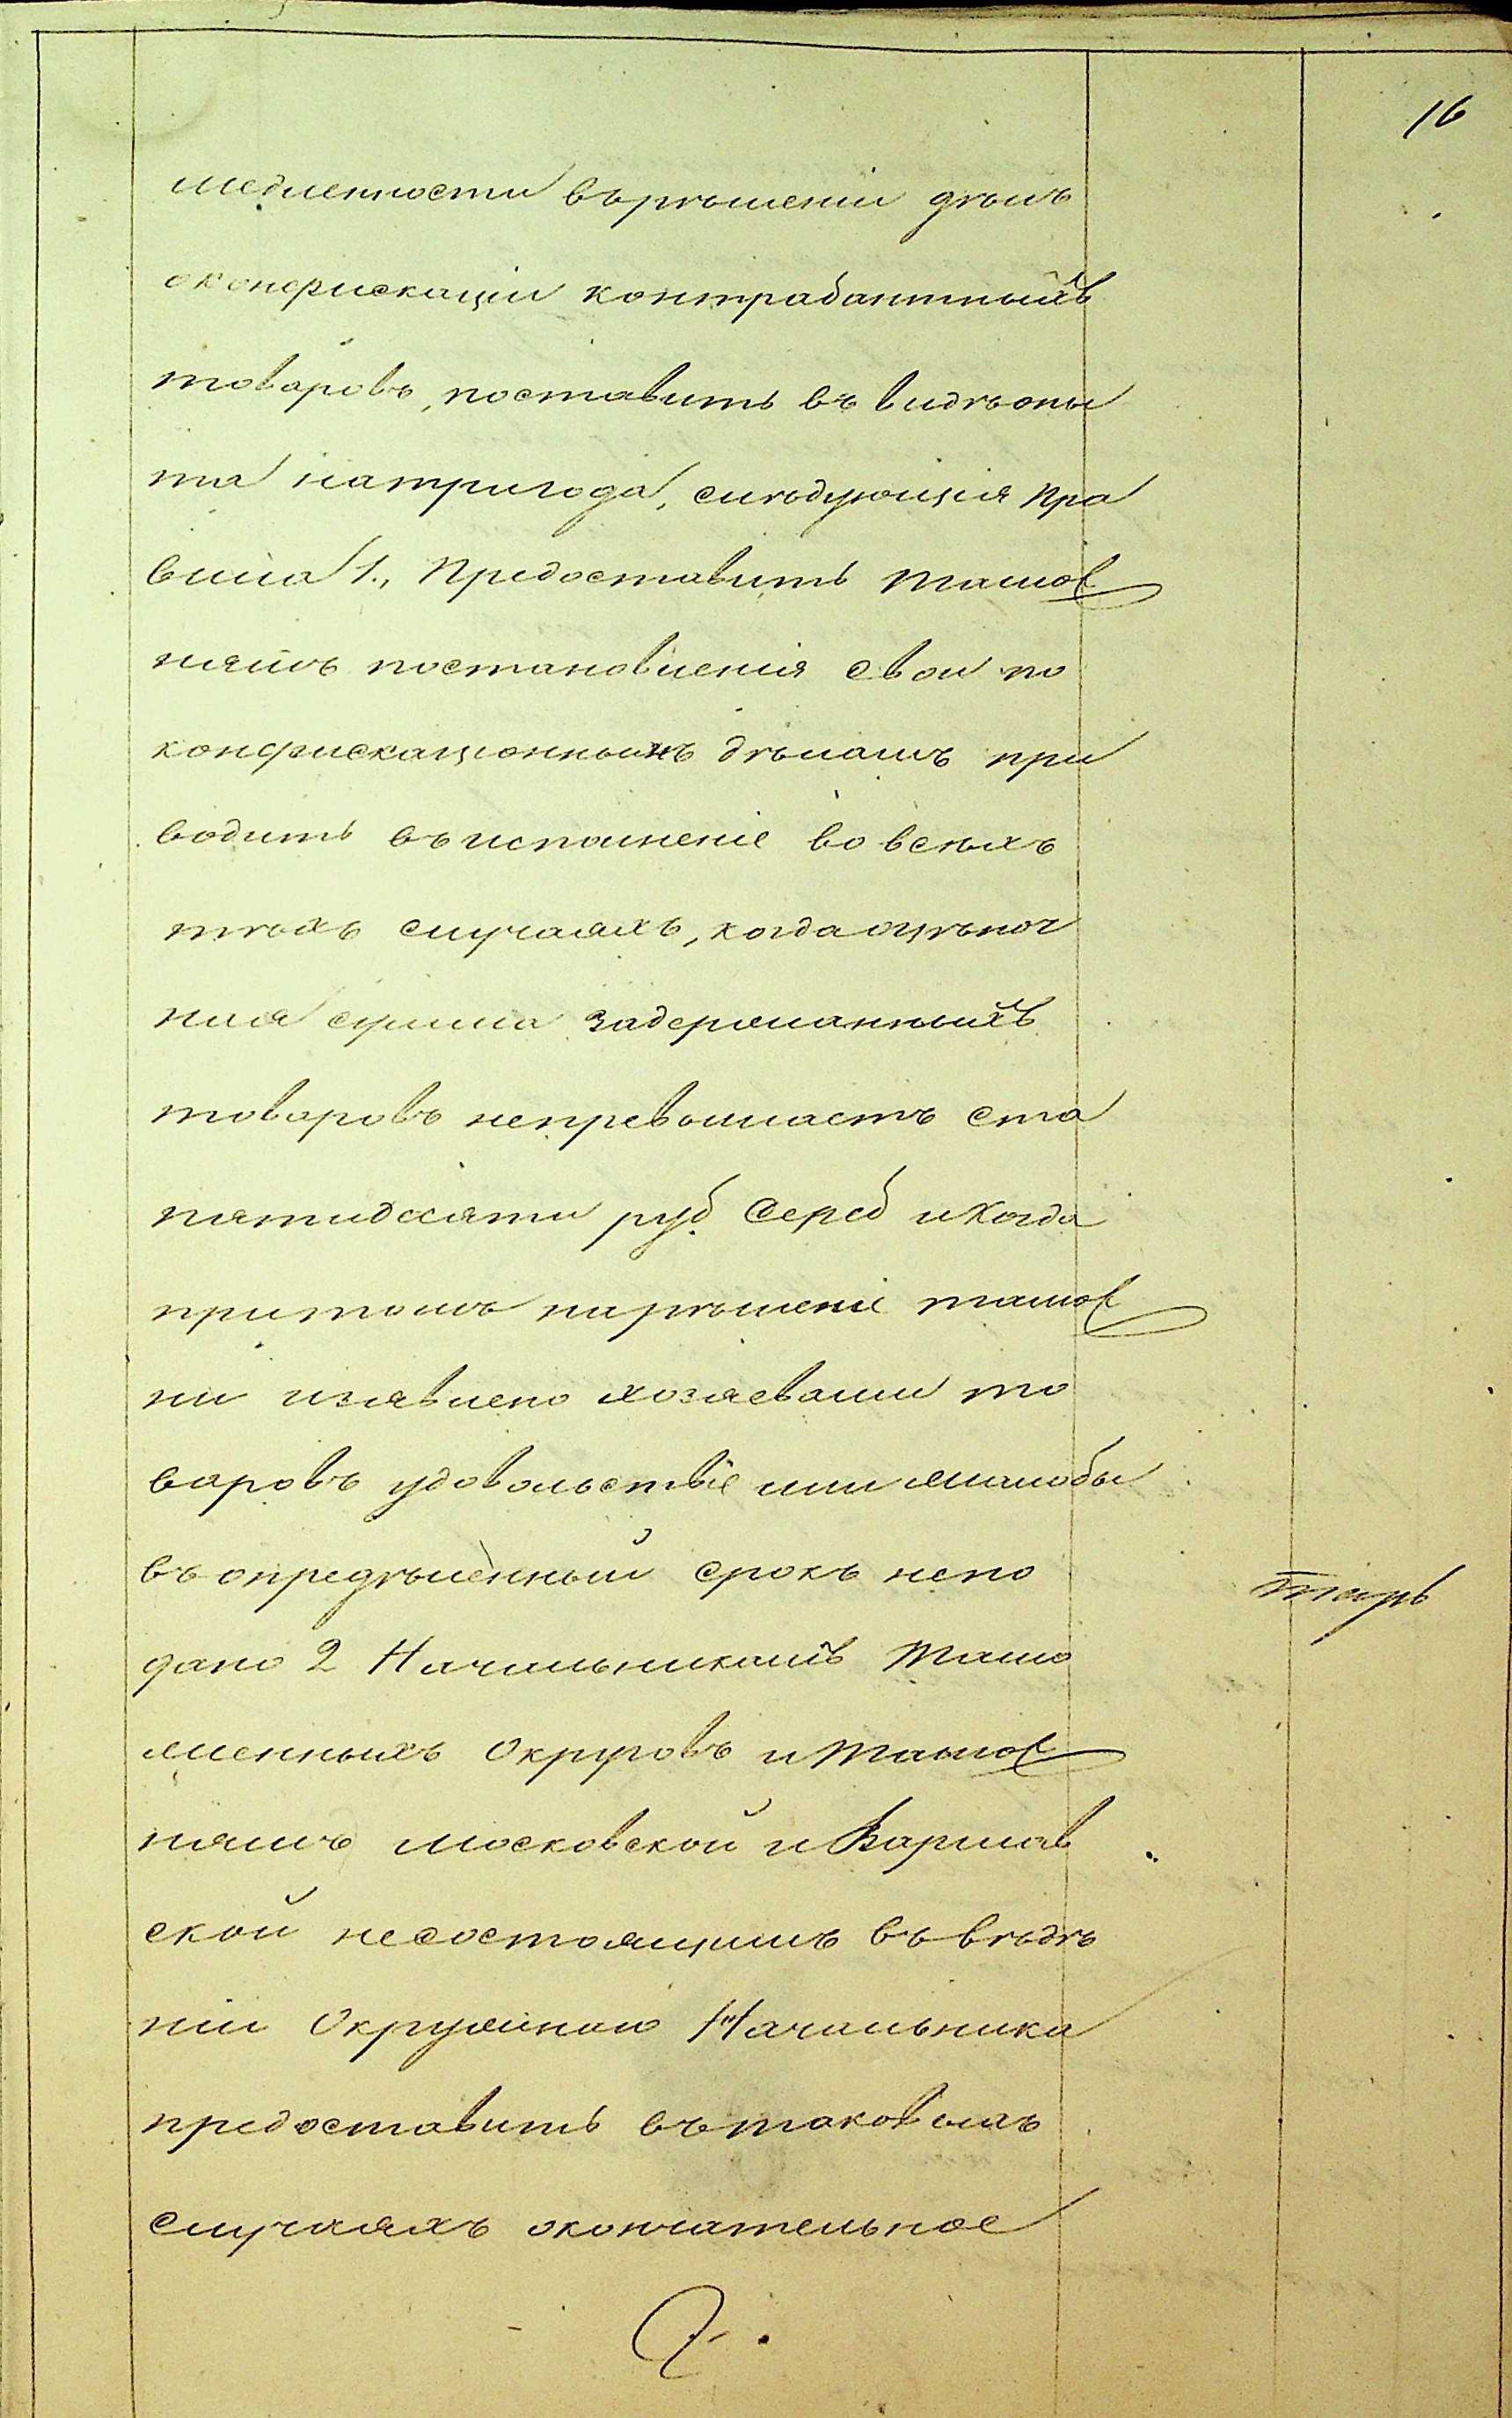 16
медленности въ рѣшеніи дѣлъ
о конфискаціи контрабантныхъ
товаровъ, поставить въ видѣ опы
та на три года, слѣдующія пра
вила 1., Предоставить тамож
нямъ постановленія свои по
конфискаціоннымъ дѣламъ при
водить въ исполненіе во всѣхъ
тѣхъ случаяхъ, когда оцѣноч
ная сумма задержанныхъ
товаровъ непревышаетъ ста
пятидесяти руб Сереб и когда
притомъ на рѣшеніе тамож
ни изявлено хозяевами то
варовъ удовольствіе или жалобы
въ опредѣленный срокъ непо
дано 2 Начальникамъ Тамо
женныхъ Округовъ и Тамож
нямъ Московской и Варшав
ской несостоящимъ въ вѣдѣ
ніи Окружнаго Начальника
предоставить въ таковыхъ
случаяхъ окончательное
тарь